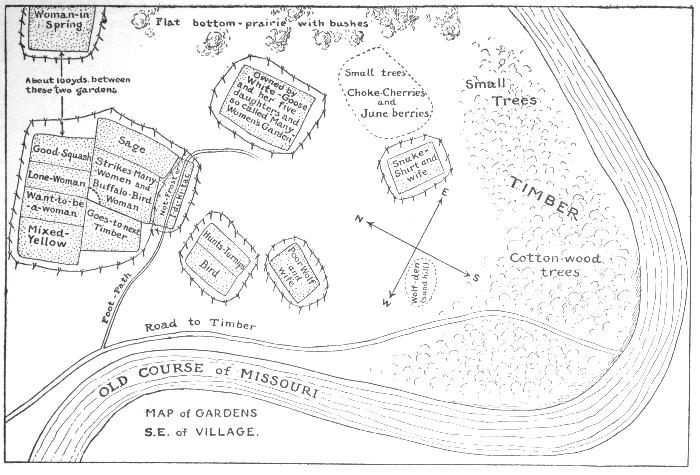 Woman-in
Spring
Flat bottom-prairie with bushes
About 100yds. between
these two gardens
Owned by
White-Goose
and her five
daughters and
so called Many
Women's Garden
Small trees
Choke-Cherries
and
June berries.
Small
Trees
Good-Squash
Lone-Woman
Want-to-be
-a-woman
Mixed-
Yellow
Sage
Strikes-Many
Women and
Buffalo-Bird
Woman
Goes-to-next
Timber
Not-Frost or
Snake-
Shirt and
wife
TIMBER
E
N
S
W
Cotton-wood
trees
Hunts-Turnips
Bird
Poor Wolf
and
wife
Wolf den
(sand hill)
Foot-Path
Road to Timber
OLD COURSE of MISSOURI
MAP of GARDENS
S.E. of VILLAGE.